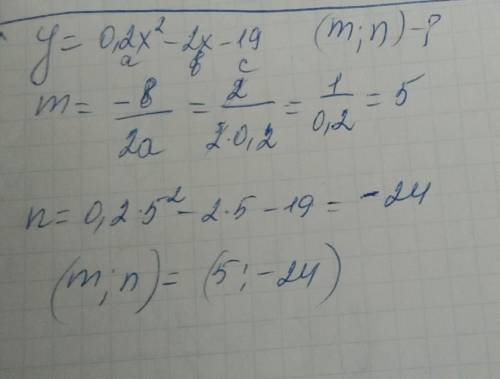 y = 0,2x² - 2x - 19 (m; n) - ?
a в c
m = -в/2a = 2/2·0,2 = 1/0,2 = 5
n = 0,2·5² - 2·5 - 19 = -24
(m; n) = (5; -24)